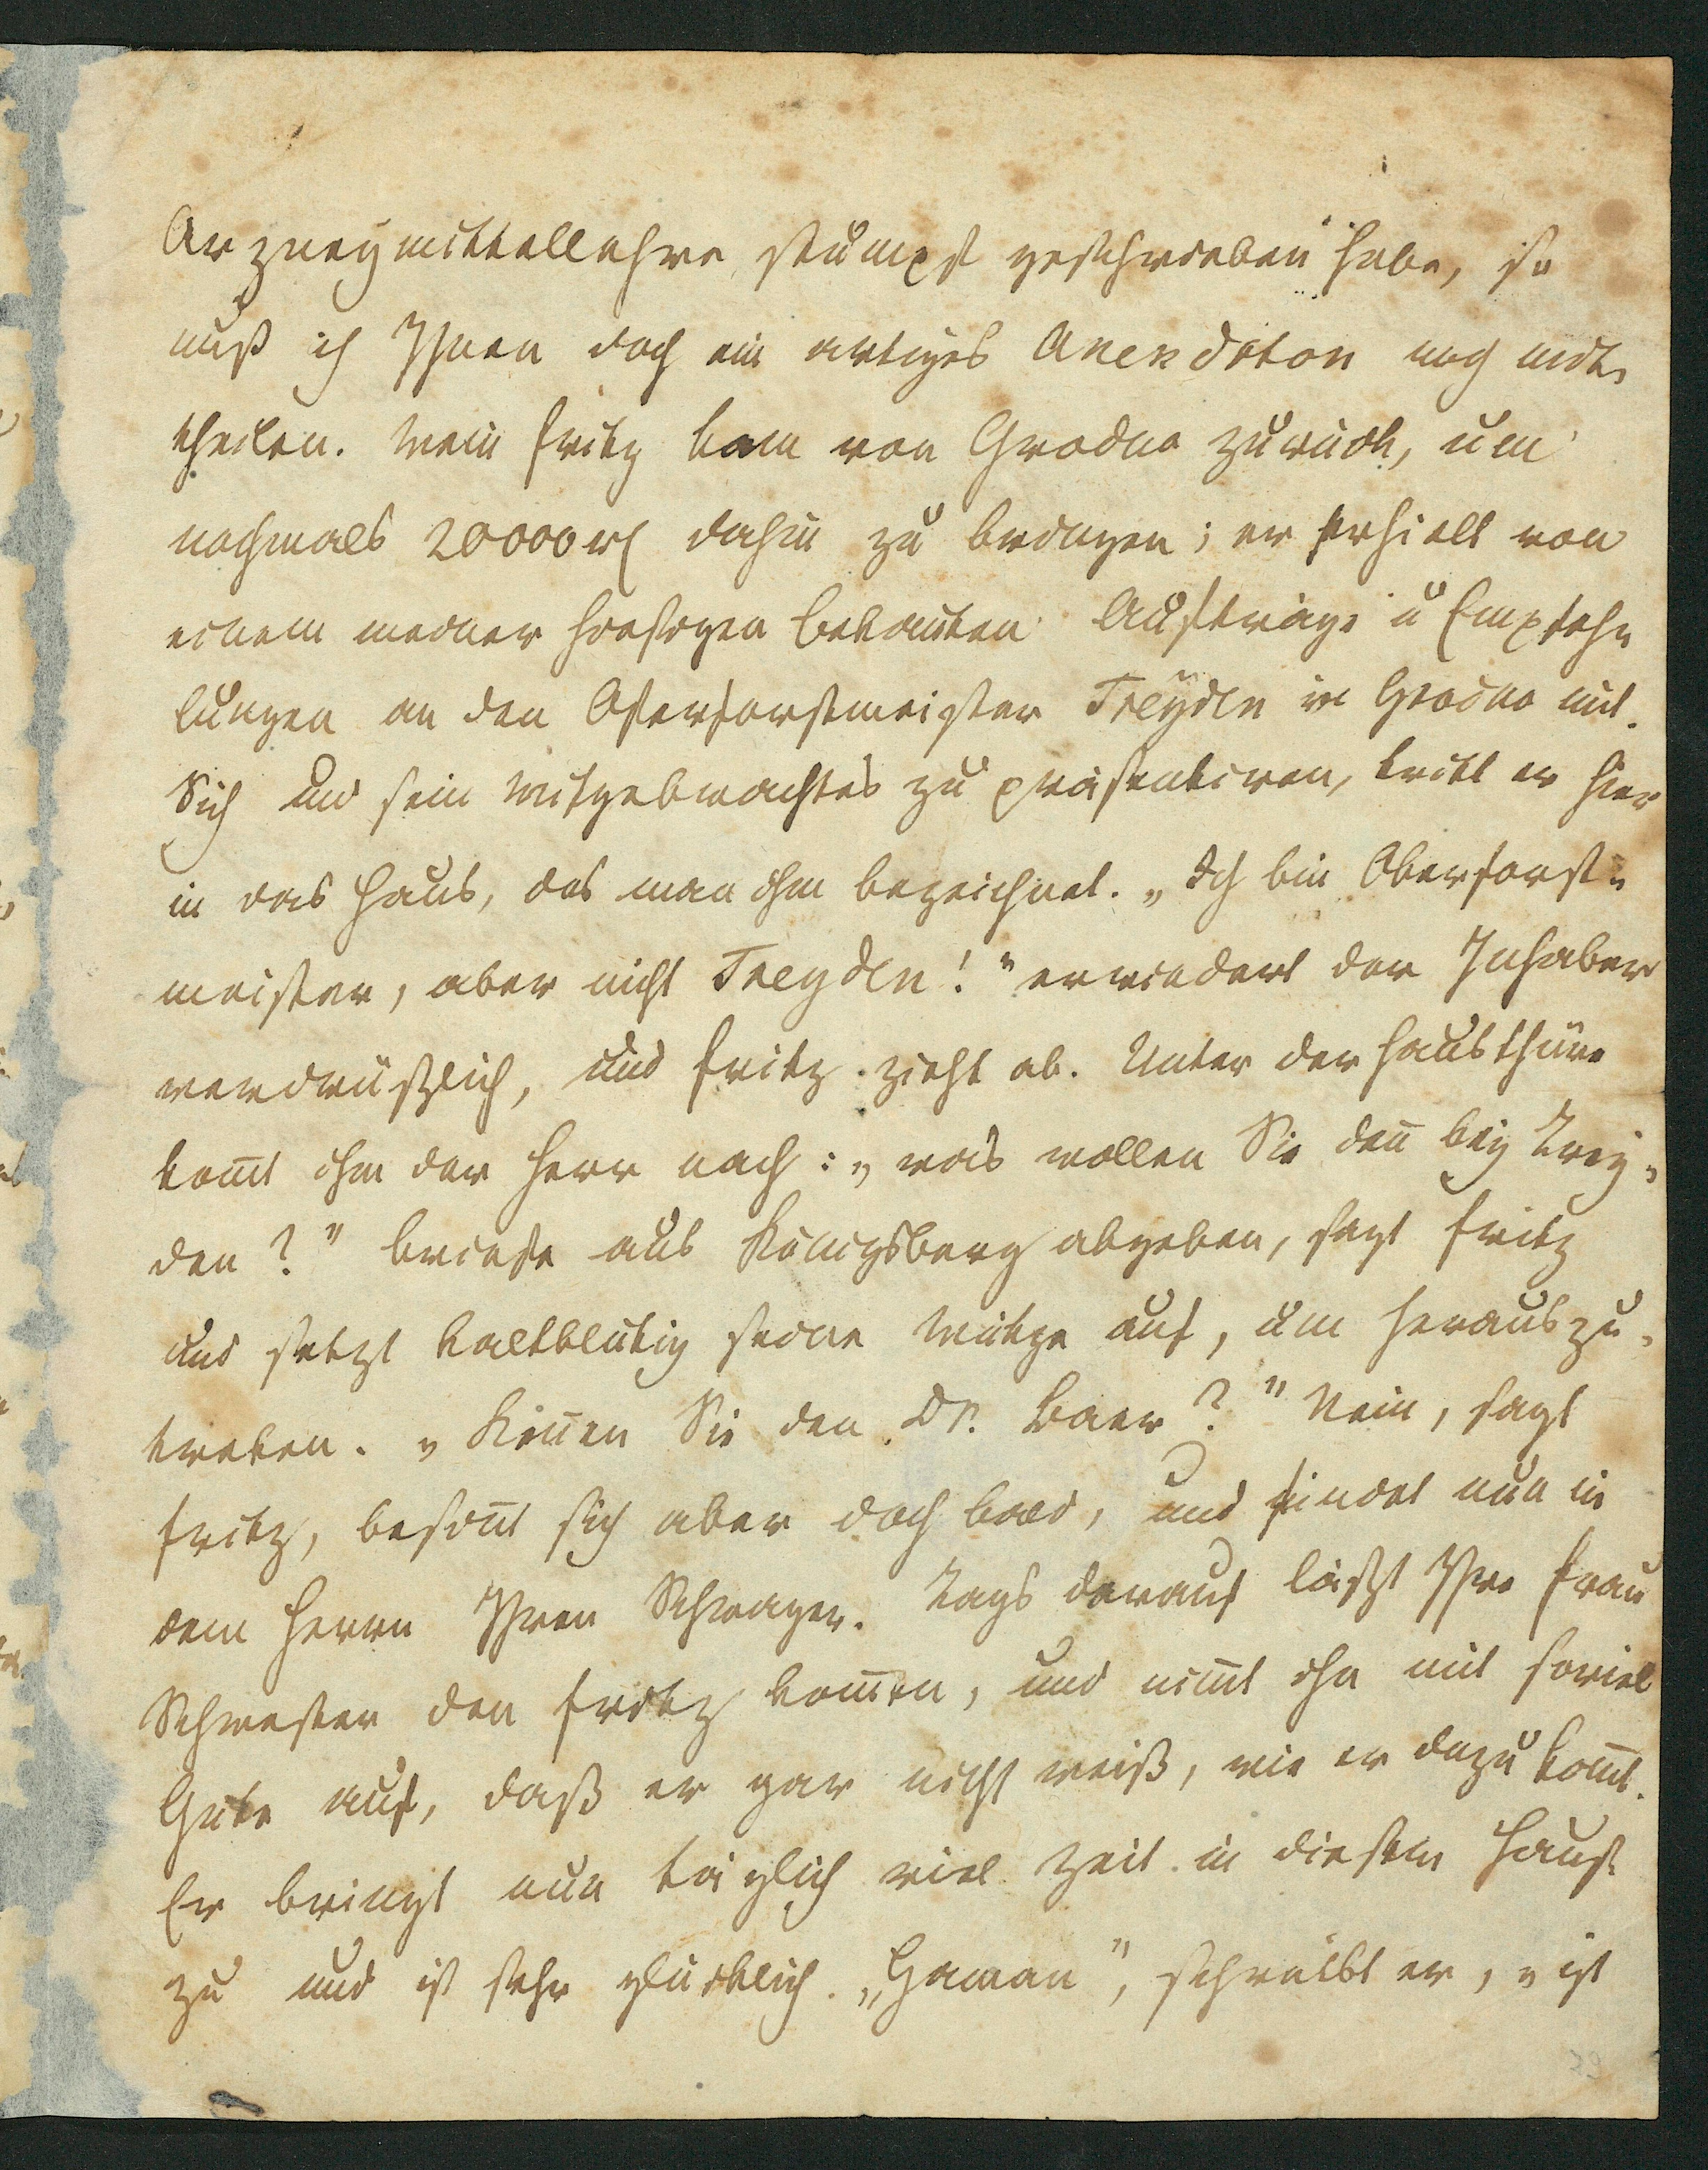 Arzneymittellehre stumpf geschrieben habe, so
muß ich Ihnen doch ein artiges Anekdoton noch mit-
theilen. Mein Fritz kam von Grodno zurück, um
nochmals 20000 rℓ dahin zu bringen; er erhielt von
einem meiner hiesigen Bekan̅ten Aufträge u Empfeh-
lungen an den Oberforstmeister Treyden in Grodno mit.
Sich und sein Mitgebrachtes zu präsentiren, tritt er hier
in das Haus, das man ihm bezeichnet. „Ich bin Oberforst-
meister, aber nicht Treyden!" erwiedert der Inhaber
verdrüßlich, und Fritz zieht ab. Unter der Hausthüre
kom̅t ihm der Herr nach: „was wollen Sie den̅ bey Trey-
den?" Briefe aus Königsberg abgeben, sagt Fritz
und setzt kaltblütig seine Mütze auf, um herauszu-
treten. „Ken̅en Sie den Dr. Baer?" Nein, sagt
Fritz, besin̅t sich aber doch bald, und findet nun in
dem Herrn Ihren Schwager. Tags darauf läßt Ihre Frau
Schwester den Fritz kom̅en, und nim̅t ihn mit soviel
Güte auf, daß er gar nicht weiß, wie er dazu kom̅t.
Er bringt nun täglich viel Zeit in diesem Hause
zu und ist sehr glücklich. „Haman", schreibt er, „ist